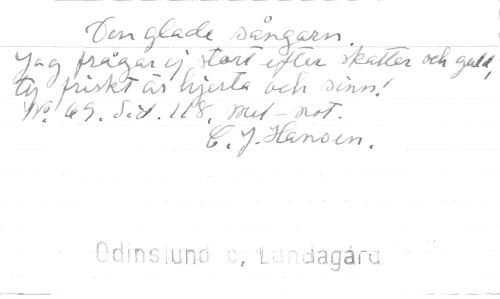 Den glade sångarn.
Jag frågar ej stort efter skatter och guld,
ty friskt är hjerta och sinn!
Nº 69. S.d. 118, mel-not.
C. J. Hansen.
Odinslund o, Lundagård